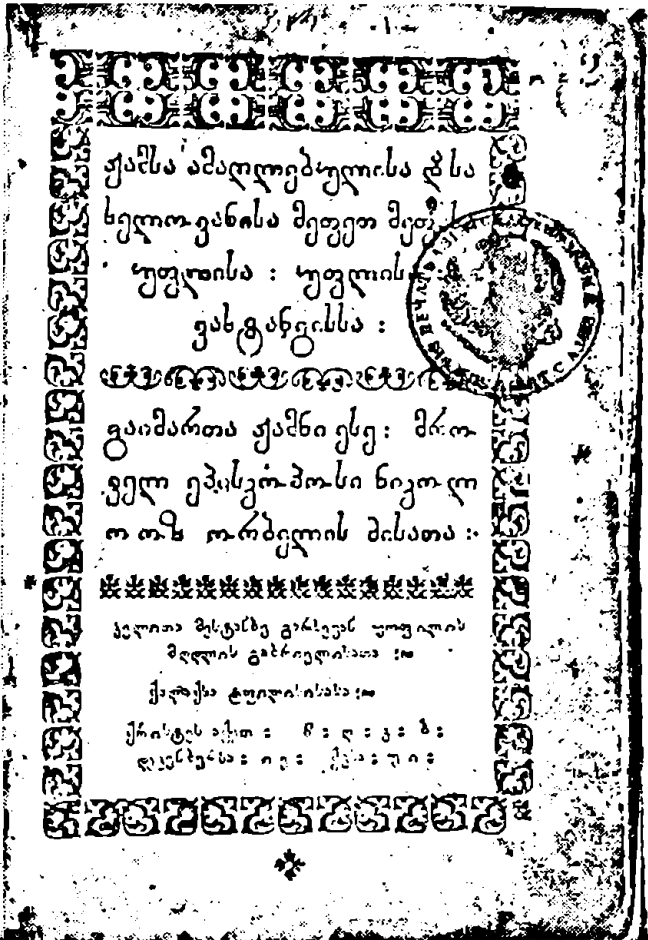 ჟამსა ამაღლებულისა დსა
ხელოვანისა მეფეთ
უფლისა : უფლის
ვახტანგისსა :
გაიმართა ჟამნი ესე : მრო
ველ ეპისკოპოსი ნიკოლ
ორბელის მისათა :
გარსევან ყოფილის
მღდლის გაბრიელისათა :
ქალაქსა ტფილისისასა :
ქრისტეს აქეთ : ჩ : ღ : კ : ბ :
დეკენბერსა : ი ე : ქკსა : უ ი :